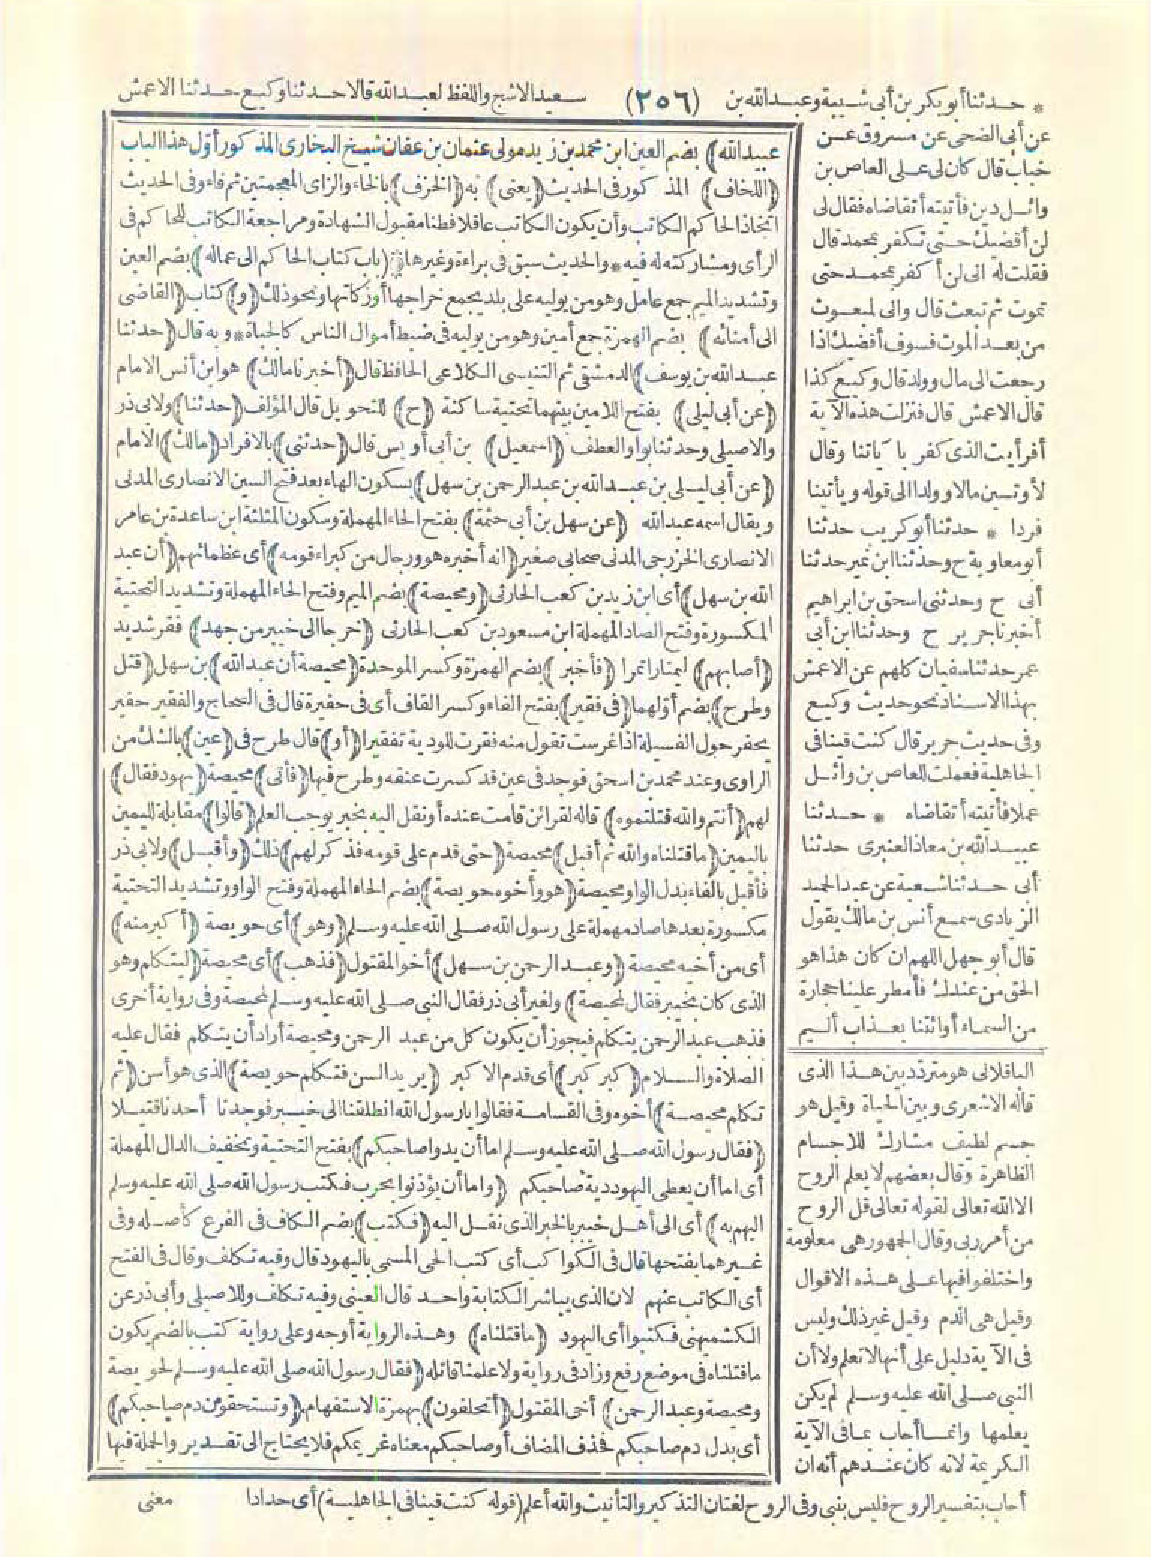 * حدثنا أبو بكر بن أبي شيبة وعبد الله بن (٢٥٦) سعيد الاشج واللفظ لعبد الله قالا حدثنا وكيع حدثنا الاعمش
عن أبي الضحى عن مسروق عن
خباب قال كان لي على العاص بن
وائل دين فأتيته أتقاضاه فقال لي
لن أقضيك حتى تكفر بمحمد قال
فقلت له اني لن أكفر بمحمد حتى
تموت ثم تبعث قال واني لمبعوث
من بعد الموت فسوف أقضيك اذا
رجعت الى مال وولد قال وكيع كذا
قال الاعمش قال فنزلت هذه الآية
أفرأيت الذي كفر بآياتنا وقال
لأوتين مالا وولدا الى قوله ويأتينا
فردا * حدثنا أبو كريب حدثنا
أبو معاوية ح وحدثنا ابن نمير حدثنا
أبي ح وحدثني اسحق بن ابراهيم
أخبرنا جرير ح وحدثنا ابن أبي
عمر حدثنا سفيان كلهم عن الاعمش
بهذا الاسناد نحو حديث وكيع
وفي حديث جرير قال كنت قينا في
الجاهلية فعملت للعاص بن وائل
عملا فأتيته أتقاضاه * حدثنا
عبيد الله بن معاذ العنبري حدثنا
أبي حدثنا شعبة عن عبد الحميد
الزيادي سمع أنس بن مالك يقول
قال أبو جهل اللهم ان كان هذا هو
الحق من عندك فأمطر علينا حجارة
من السماء أو ائتنا بعذاب أليم
الباقلاني هو متردد بين هذا الذي
قاله الاشعري وبين الحياة وقيل هو
جسم لطيف مشارك للاجسام
الظاهرة وقال بعضهم لا يعلم الروح
الا الله تعالى لقوله تعالى قل الروح
من أمر ربي وقال الجمهور هي معلومة
واختلفوا فيها على هذه الاقوال
وقيل هي الدم وقيل غير ذلك وليس
في الآية دليل على أنها لا تعلم ولا أن
النبي صلى الله عليه وسلم لم يكن
يعلمها وانما أجاب بما في الآية
الكريمة لانه كان عندهم أنه ان
أجاب بتفسير الروح فليس بنبي وفي الروح لغتان التذكير والتأنيث والله أعلم (قوله كنت قينا في الجاهلية) أي حدادا
عبيد الله) بضم العين ابن محمد بن زيد مولى عثمان بن عفان شيخ البخاري المذكور أول هذا الباب
(اللخاف) المذكور في الحديث (يعني) به (الخزف) بالخاء والزاي المعجمتين ثم فاء وفي الحديث
اتخاذ الحاكم الكاتب وأن يكون الكاتب عاقلا فطنا مقبول الشهادة ومراجعة الكاتب للحاكم في
الرأي ومشاركته له فيه * والحديث سبق في براءة وغيرها (باب كتاب الحاكم الى عماله) بضم العين
وتشديد الميم جمع عامل وهو من يوليه على بلد يجمع خراجها أو زكاتها ونحو ذلك (و) كتاب (القاضي
الى أمنائه) بضم الهمزة جمع أمين وهو من يوليه في ضبط أموال الناس كالجباة * وبه قال (حدثنا
عبد الله بن يوسف) الدمشقي ثم التنيسي الكلاعي الحافظ قال (أخبرنا مالك) هو ابن أنس الامام
(عن أبي ليلى) بفتح اللامين بينهما تحتية ساكنة (ح) للتحويل قال المؤلف (حدثنا) ولابي ذر
والاصيلي وحدثنا بواو العطف (اسمعيل) بن أبي أويس قال (حدثني) بالافراد (مالك) الامام
(عن أبي ليلى بن عبد الله بن عبد الرحمن بن سهل) بسكون الهاء بعد فتح السين الانصاري المدني
ويقال اسمه عبد الله (عن سهل بن أبي حثمة) بفتح الحاء المهملة وسكون المثلثة ابن ساعدة بن عامر
الانصاري الخزرجي المدني صحابي صغير (انه أخبره هو ورجال من كبراء قومه) أي عظمائهم (أن عبد
الله بن سهل) أي ابن زيد بن كعب الحارثي (ومحيصة) بضم الميم وفتح الحاء المهملة وتشديد التحتية
المكسورة وفتح الصاد المهملة ابن مسعود بن كعب الحارثي (خرجا الى خيبر من جهد) فقر شديد
(أصابهم) ليمتارا تمرا (فأخبر) بضم الهمزة وكسر الموحدة (محيصة أن عبد الله) بن سهل (قتل
وطرح) بضم أولهما (في فقير) بفتح الفاء وكسر القاف أي في حفيرة قال في الصحاح والفقير حفير
يحفر حول الفسيلة اذا غرست تقول منه فقرت للودية تفقيرا (أو) قال طرح في (عين) بالشك من
الراوي وعند محمد بن اسحق فوجد في عين قد كسرت عنقه وطرح فيها (فأتى) محيصة (يهود فقال)
لهم (أنتم والله قتلتموه) قاله لقرائن قامت عنده أو نقل اليه بخبر يوجب العلم (قالوا) مقابلة لليمين
باليمين (ما قتلناه والله ثم أقبل) محيصة (حتى قدم على قومه فذكر لهم) ذلك (وأقبل) ولابي ذر
فأقبل بالفاء بدل الواو محيصة (هو وأخوه حويصة) بضم الحاء المهملة وفتح الواو وتشديد التحتية
مكسورة بعدها صاد مهملة على رسول الله صلى الله عليه وسلم (وهو) أي حويصة (أكبر منه)
أي من أخيه محيصة (وعبد الرحمن بن سهل) أخو المقتول (فذهب) أي محيصة (ليتكلم وهو
الذي كان بخيبر فقال لمحيصة) ولغير أبي ذر فقال النبي صلى الله عليه وسلم لمحيصة وفي رواية أخرى
فذهب عبد الرحمن يتكلم فيجوز أن يكون كل من عبد الرحمن ومحيصة أراد أن يتكلم فقال عليه
الصلاة والسلام (كبر كبر) أي قدم الاكبر (يريد السن فتكلم حويصة) الذي هو أسن (ثم
تكلم محيصة) أخوه وفي القسامة فقالوا يا رسول الله انطلقنا الى خيبر فوجدنا أحدنا قتيلا
(فقال رسول الله صلى الله عليه وسلم اما أن يدوا صاحبكم) بفتح التحتية وتخفيف الدال المهملة
أي اما أن يعطي اليهود دية صاحبكم (واما أن يؤذنوا بحرب فكتب رسول الله صلى الله عليه وسلم
اليهم به) أي الى أهل خيبر بالخبر الذي نقل اليه (فكتب) بضم الكاف في الفرع كأصله وفي
غيرهما بفتحها قال في الكواكب أي كتب الحي المسمى باليهود قال وفيه تكلف وقال في الفتح
أي الكاتب عنهم لان الذي يباشر الكتابة واحد قال العيني وفيه تكلف وللاصيلي وأبي ذر عن
الكشميهني فكتبوا أي اليهود (ما قتلناه) وهذه الرواية أوجه وعلى رواية كتب بالضم يكون
ما قتلناه في موضع رفع وزاد في رواية ولا علمنا قاتله (فقال رسول الله صلى الله عليه وسلم لحويصة
ومحيصة وعبد الرحمن) أخي المقتول (أتحلفون) بهمزة الاستفهام (وتستحقون دم صاحبكم)
أي بدل دم صاحبكم فحذف المضاف أو صاحبكم معناه غريمكم فلا يحتاج الى تقدير والجملة فيها
معنى